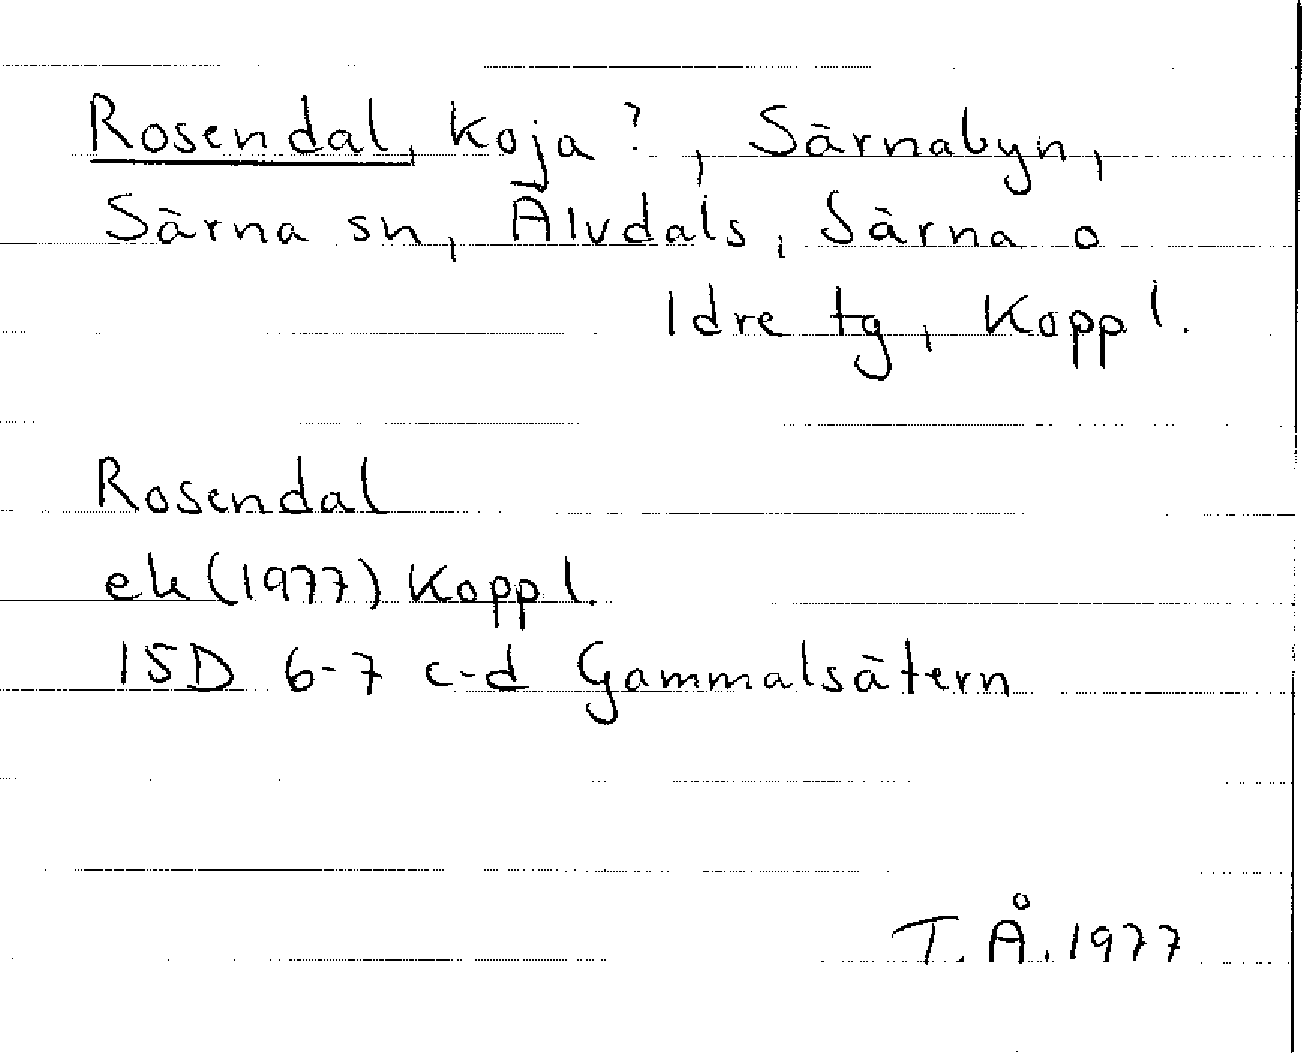 Rosendal, koja?, Särnabyn,
Särna sn, Älvdals, Särna o
Idre tg, Koppl.
Rosendal
ek (1977) Koppl.
15D 6-7 c-d Gammalsätern
T.Å. 1977